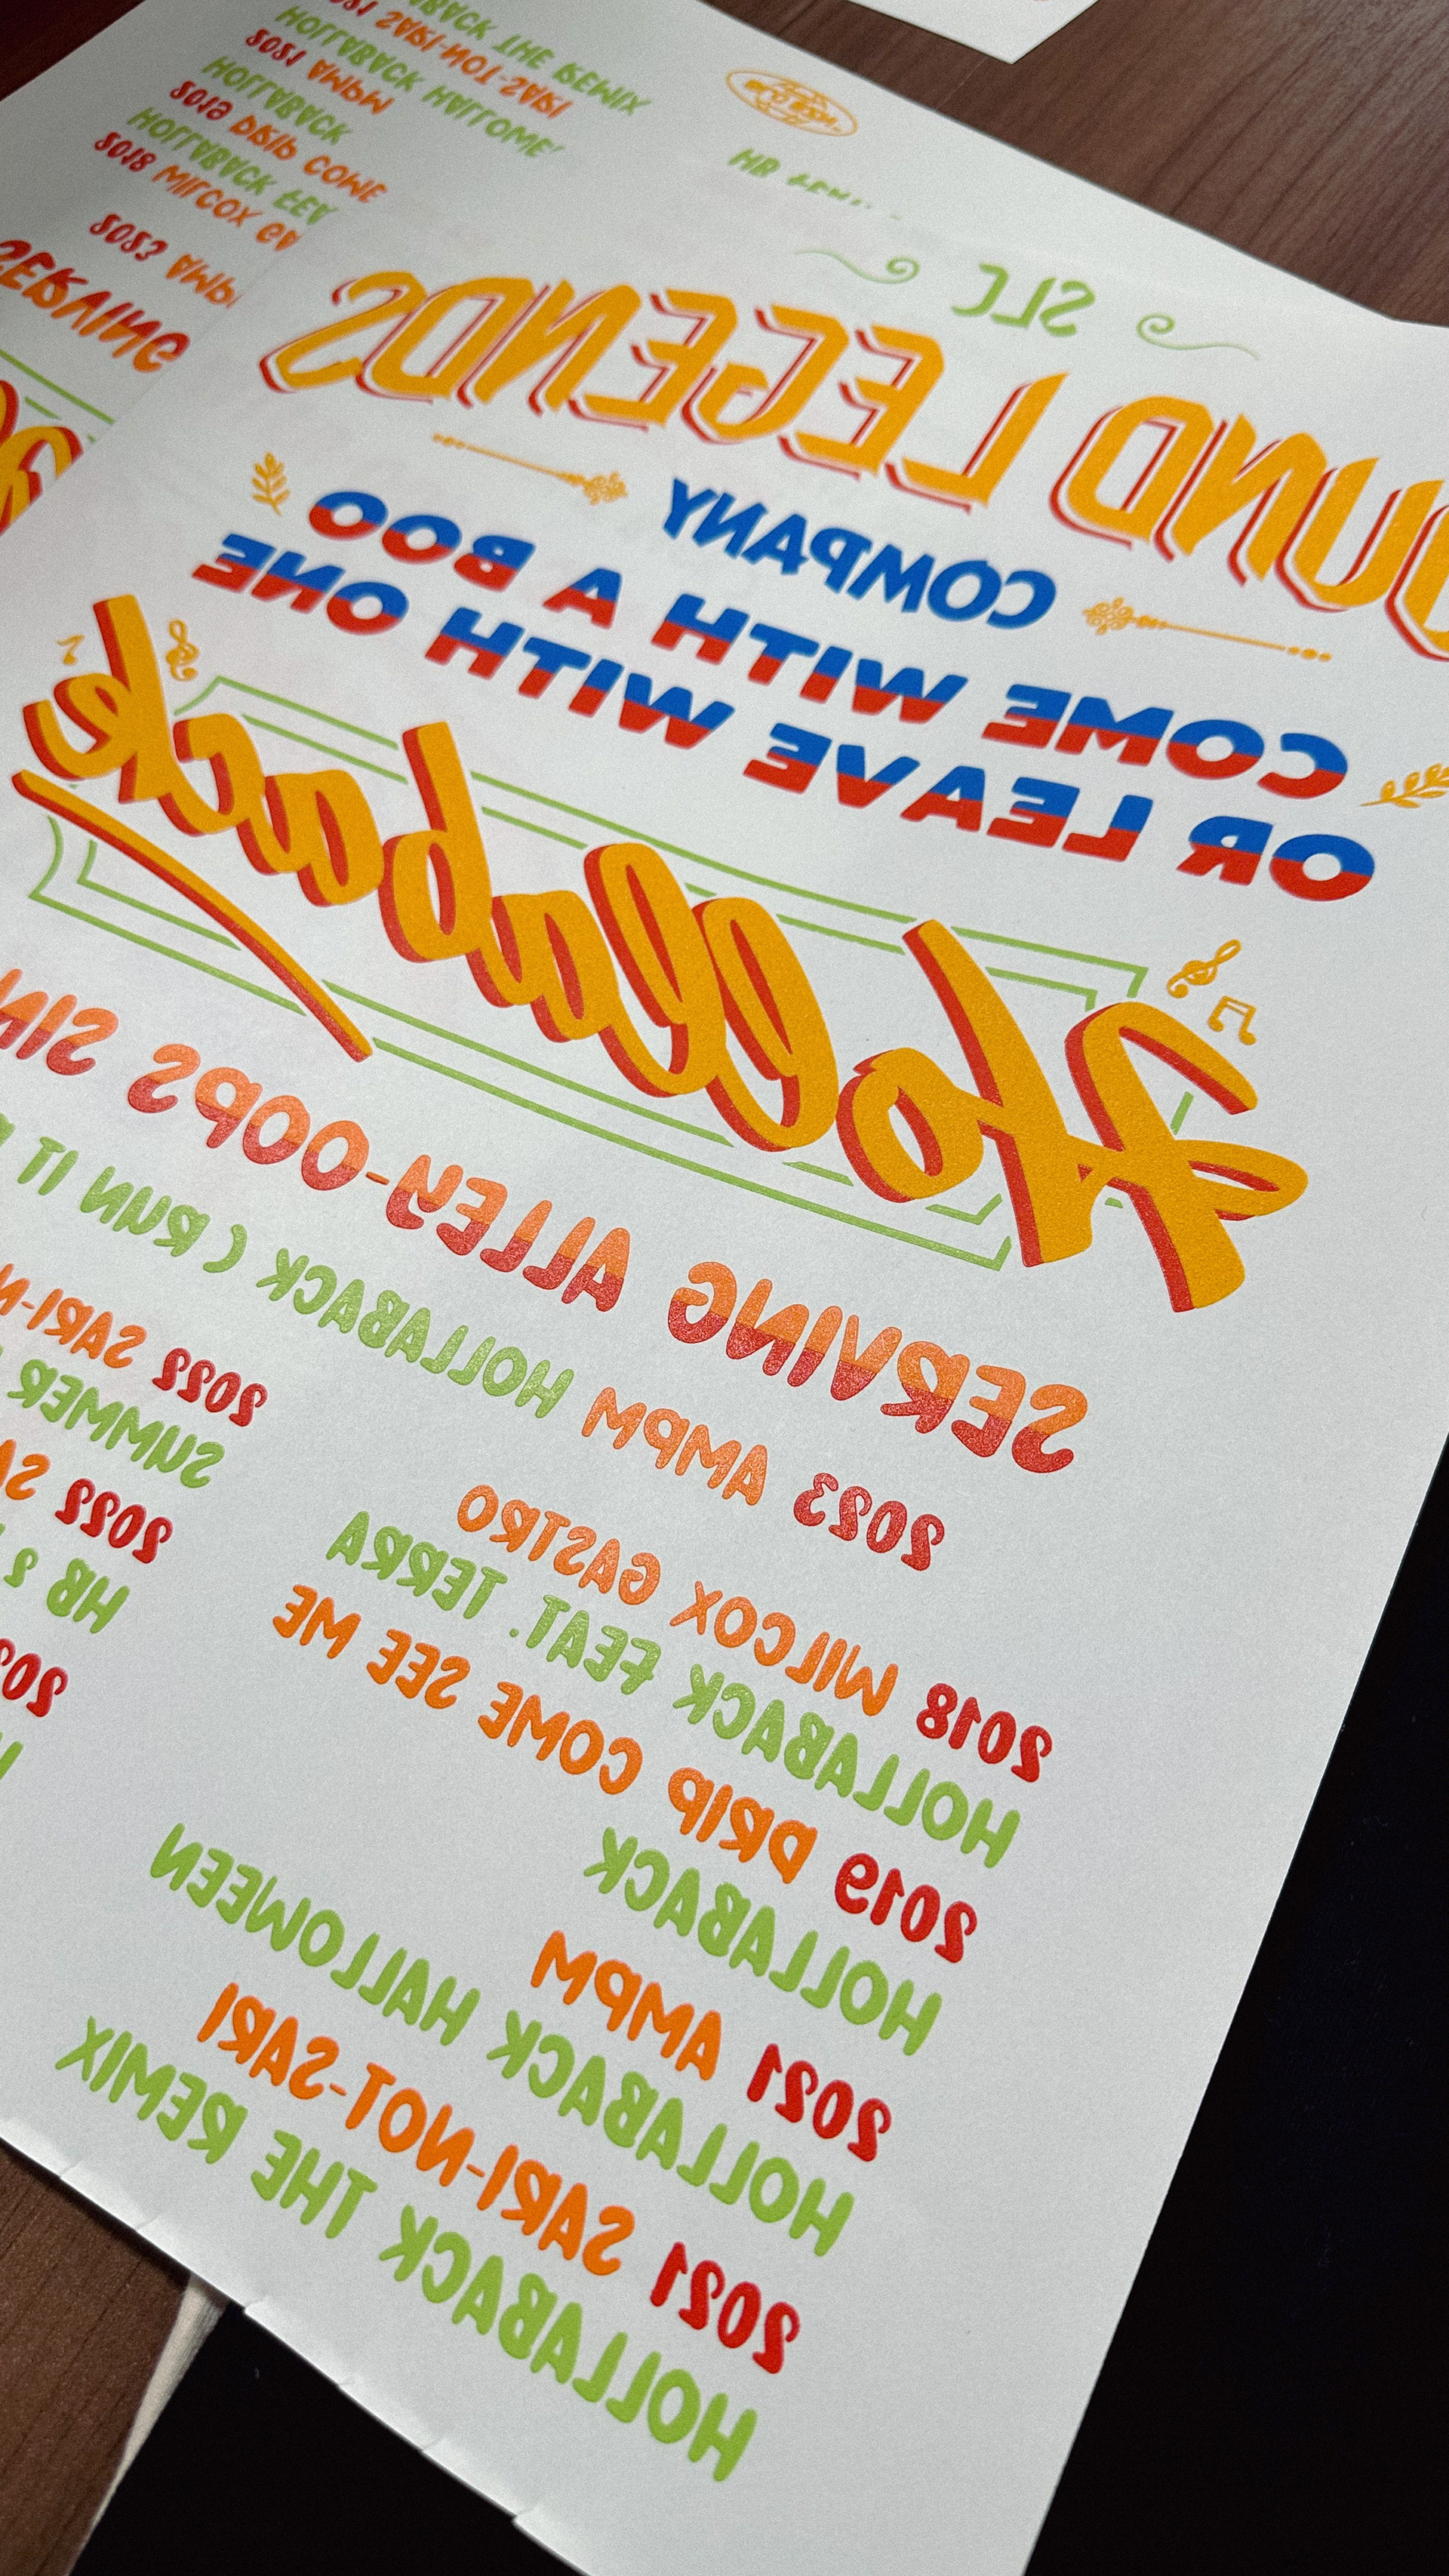 SLC
UND LEGENDS
COMPANY
COME WITH A BOO
OR LEAVE WITH ONE
Hollaback
SERVING ALLEY-OOPS SIN
2023 AMPM HOLLABACK ( RUN IT
2018 MILCOX GASTRO
HOLLABACK FEAT. TERRA
2019 DRIP COME SEE ME
HOLLABACK
2021 AMPM
HOLLABACK HALLOMEEN
2021 SARI-NOT-SARI
HOLLABACK THE REMIX
2022 SARI-N
SUMMER
2022 SA
HB 2
202
H
HB
SERVING
2023 AMP
2018 MILCOX GA
HOLLABACK FEA
2019 DRIP COME
HOLLABACK
2021 AMPM
HOLLABACK HALLOME
2021 SARI-NOT-SARI
ABACK THE REMIX